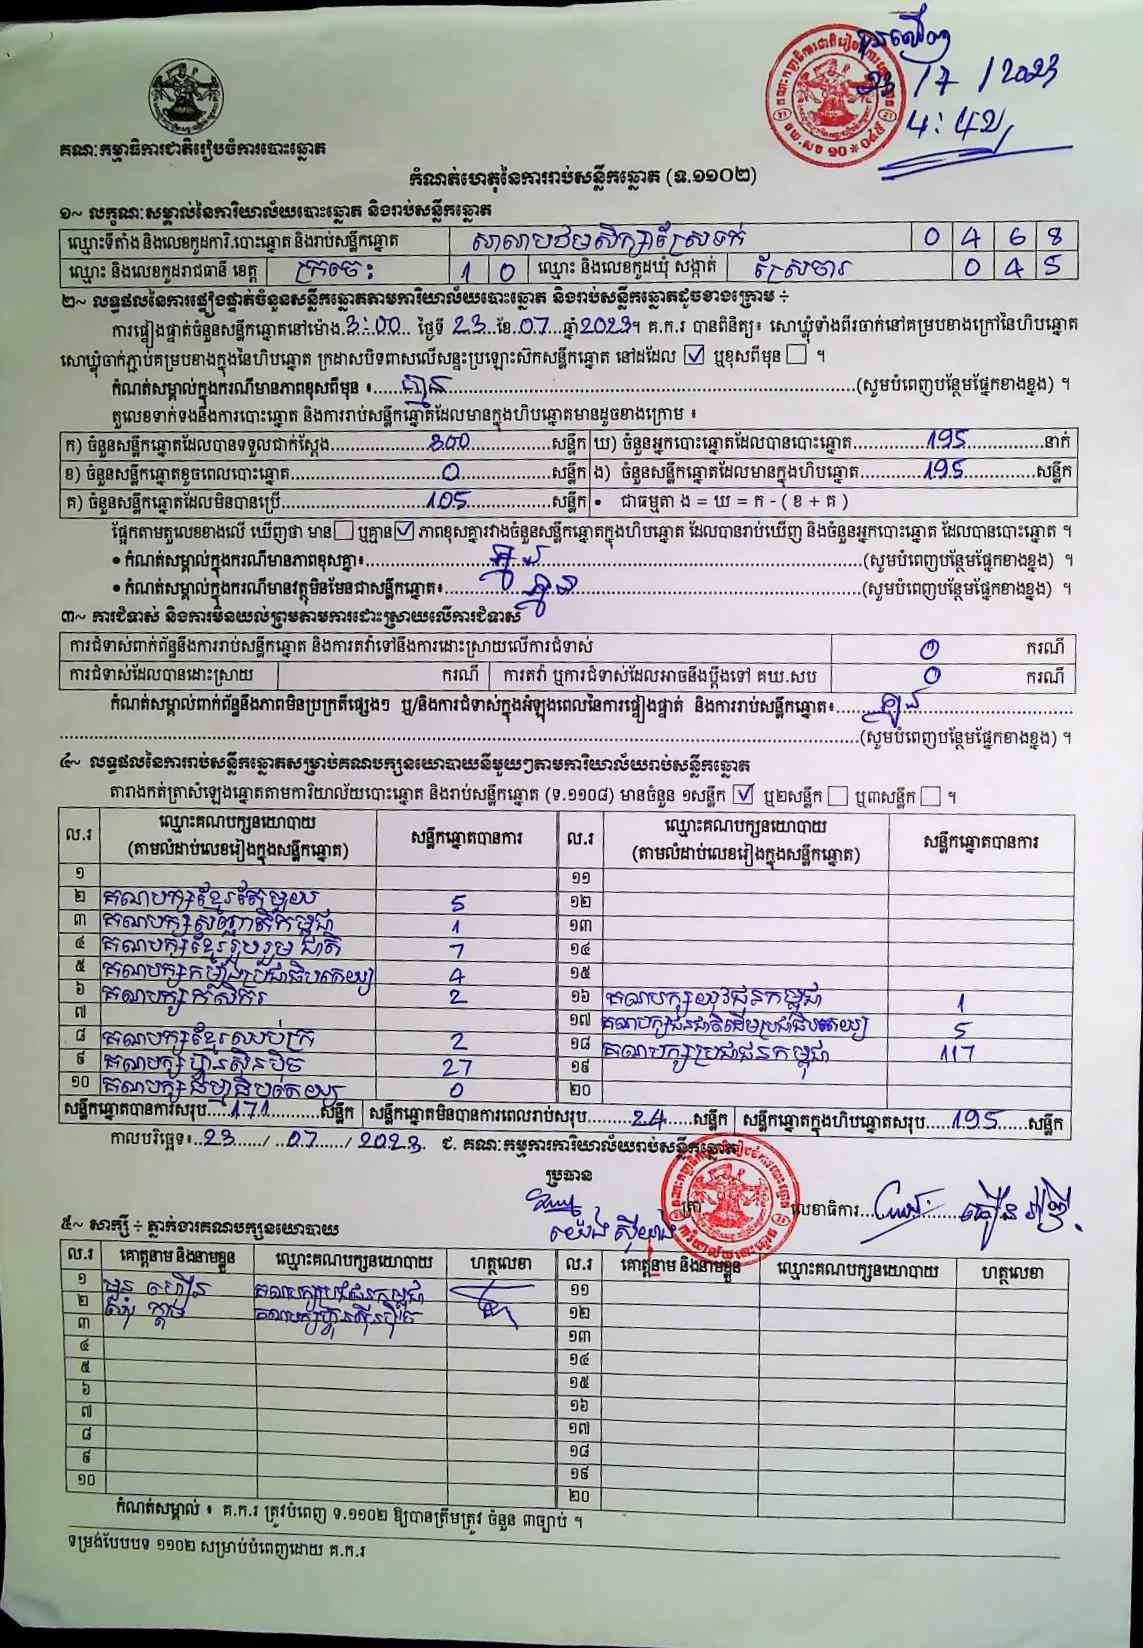 ជូនលើញ
23/7/2023
4:42
គណៈកម្មាធិការជាតិរៀបចំការបោះឆ្នោត
កំណត់ហេតុនៃការរាប់សន្លឹកឆ្នោត (ទ.១១០២)
១~ លក្ខណៈសម្គាល់នៃការិយាល័យបោះឆ្នោត និងរាប់សន្លឹកឆ្នោត
ឈ្មោះទីតាំង និងលេខកូដការិ.បោះឆ្នោត និងរាប់សន្លឹកឆ្នោត សាលាបឋមសិក្សាស្រែទក់ 0 4 6 8
ឈ្មោះ និងលេខកូដរាជធានី ខេត្ត ក្រចេះ 1 0 ឈ្មោះ និងលេខកូដឃុំ សង្កាត់ ស្រែចារ 0 4 5
២~ លទ្ធផលនៃការផ្ទៀងផ្ទាត់ចំនួនសន្លឹកឆ្នោតតាមការិយាល័យបោះឆ្នោត និងរាប់សន្លឹកឆ្នោតដូចខាងក្រោម ÷
ការផ្ទៀងផ្ទាត់ចំនួនសន្លឹកឆ្នោតនៅម៉ោង 3:00 ថ្ងៃទី 23 ខែ 07 ឆ្នាំ 2023។ គ.ក.រ បានពិនិត្យ៖ សោឃ្លុំទាំងពីរចាក់នៅគម្របខាងក្រៅនៃហិបឆ្នោត
សោឃ្លុំចាក់ភ្ជាប់គម្របខាងក្នុងនៃហិបឆ្នោត ក្រដាសបិទពាសលើសន្ទះប្រឡោះស៊កសន្លឹកឆ្នោត នៅដដែល ☑ ឬខុសពីមុន ☐ ។
កំណត់សម្គាល់ក្នុងករណីមានភាពខុសពីមុន ៖ គ្មាន (សូមបំពេញបន្ថែមផ្នែកខាងខ្នង) ។
តួលេខទាក់ទងនឹងការបោះឆ្នោត និងការរាប់សន្លឹកឆ្នោតដែលមានក្នុងហិបឆ្នោតមានដូចខាងក្រោម ៖
ក) ចំនួនសន្លឹកឆ្នោតដែលបានទទួលជាក់ស្តែង 300 សន្លឹក ឃ) ចំនួនអ្នកបោះឆ្នោតដែលបានបោះឆ្នោត 195 នាក់
ខ) ចំនួនសន្លឹកឆ្នោតខូចពេលបោះឆ្នោត 0 សន្លឹក ង) ចំនួនសន្លឹកឆ្នោតដែលមានក្នុងហិបឆ្នោត 195 សន្លឹក
គ) ចំនួនសន្លឹកឆ្នោតដែលមិនបានប្រើ 105 សន្លឹក • ជាធម្មតា ង = ឃ = ក - ( ខ + គ )
ផ្អែកតាមតួលេខខាងលើ ឃើញថា មាន ☐ ឬគ្មាន ☑ ភាពខុសគ្នារវាងចំនួនសន្លឹកឆ្នោតក្នុងហិបឆ្នោត ដែលបានរាប់ឃើញ និងចំនួនអ្នកបោះឆ្នោត ដែលបានបោះឆ្នោត ។
• កំណត់សម្គាល់ក្នុងករណីមានភាពខុសគ្នា៖ គ្មាន (សូមបំពេញបន្ថែមផ្នែកខាងខ្នង) ។
• កំណត់សម្គាល់ក្នុងករណីមានវត្ថុមិនមែនជាសន្លឹកឆ្នោត៖ គ្មាន (សូមបំពេញបន្ថែមផ្នែកខាងខ្នង) ។
៣~ ការជំទាស់ និងការមិនយល់ព្រមតាមការដោះស្រាយលើការជំទាស់
ការជំទាស់ពាក់ព័ន្ធនឹងការរាប់សន្លឹកឆ្នោត និងការតវ៉ាទៅនឹងការដោះស្រាយលើការជំទាស់ 0 ករណី
ការជំទាស់ដែលបានដោះស្រាយ ករណី ការតវ៉ា ឬការជំទាស់ដែលអាចនឹងប្តឹងទៅ គឃ.សប 0 ករណី
កំណត់សម្គាល់ពាក់ព័ន្ធនឹងភាពមិនប្រក្រតីផ្សេងៗ ឬ/និងការជំទាស់ក្នុងអំឡុងពេលនៃការផ្ទៀងផ្ទាត់ និងការរាប់សន្លឹកឆ្នោត៖ គ្មាន
(សូមបំពេញបន្ថែមផ្នែកខាងខ្នង) ។
៤~ លទ្ធផលនៃការរាប់សន្លឹកឆ្នោតសម្រាប់គណបក្សនយោបាយនីមួយៗតាមការិយាល័យរាប់សន្លឹកឆ្នោត
តារាងកត់ត្រាសំឡេងឆ្នោតតាមការិយាល័យបោះឆ្នោត និងរាប់សន្លឹកឆ្នោត (ទ.១១០៨) មានចំនួន ១សន្លឹក ☑ ឬ២សន្លឹក ☐ ឬ៣សន្លឹក ☐ ។
ល.រ ឈ្មោះគណបក្សនយោបាយ (តាមលំដាប់លេខរៀងក្នុងសន្លឹកឆ្នោត) សន្លឹកឆ្នោតបានការ ល.រ ឈ្មោះគណបក្សនយោបាយ (តាមលំដាប់លេខរៀងក្នុងសន្លឹកឆ្នោត) សន្លឹកឆ្នោតបានការ
១ ១១
២ គណបក្សខ្មែរតែមួយ 5 ១២
៣ គណបក្សសញ្ជាតិកម្ពុជា 1 ១៣
៤ គណបក្សខ្មែររួបរួមជាតិ 7 ១៤
៥ គណបក្សកម្លាំងប្រជាធិបតេយ្យ 4 ១៥
៦ គណបក្សកសិករ 2 ១៦ គណបក្សយុវជនកម្ពុជា 1
៧ ១៧ គណបក្សជនជាតិដើមប្រជាធិបតេយ្យ 5
៨ គណបក្សខ្មែរឈប់ក្រ 2 ១៨ គណបក្សប្រជាជនកម្ពុជា 117
៩ គណបក្សហ្វ៊ុនស៊ិនប៉ិច 27 ១៩
១០ គណបក្សធម្មាធិបតេយ្យ 0 ២០
សន្លឹកឆ្នោតបានការសរុប 171 សន្លឹក សន្លឹកឆ្នោតមិនបានការពេលរាប់សរុប 24 សន្លឹក សន្លឹកឆ្នោតក្នុងហិបឆ្នោតសរុប 195 សន្លឹក
កាលបរិច្ឆេទ៖ 23 / 07 / 2023 ជ. គណៈកម្មការការិយាល័យរាប់សន្លឹកឆ្នោត
ប្រធាន
ត្រា
លេខាធិការ
៥~ សាក្សី ÷ ភ្នាក់ងារគណបក្សនយោបាយ
ល.រ គោត្តនាម និងនាមខ្លួន ឈ្មោះគណបក្សនយោបាយ ហត្ថលេខា ល.រ គោត្តនាម និងនាមខ្លួន ឈ្មោះគណបក្សនយោបាយ ហត្ថលេខា
១ គណបក្សប្រជាជនកម្ពុជា ១១
២ គណបក្សហ្វ៊ុនស៊ិនប៉ិច ១២
៣ ១៣
៤ ១៤
៥ ១៥
៦ ១៦
៧ ១៧
៨ ១៨
៩ ១៩
១០ ២០
កំណត់សម្គាល់ ៖ គ.ក.រ ត្រូវបំពេញ ទ.១១០២ ឱ្យបានត្រឹមត្រូវ ចំនួន ៣ច្បាប់ ។
ទម្រង់បែបបទ ១១០២ សម្រាប់បំពេញដោយ គ.ក.រ